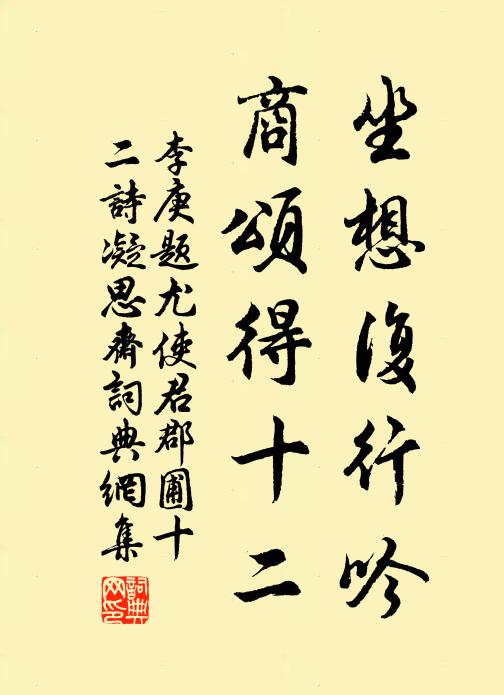 坐想復行吟
商頌得十二
李庚題尤使君郡圃十
二詩凝思齋詞典網集
詞典網印